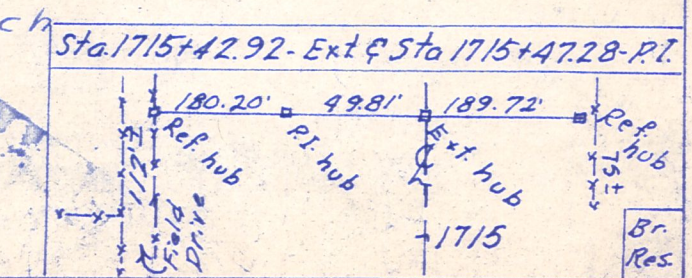 ch
Sta. 1715+42.92 - Ext ₵ Sta 1715+47.28 - P.I.
180.20' 49.81' 189.72'
Ref. hub
P.I. hub
Ext. hub
Ref. hub
112'±
75±
₵ Field Drive
1715
Br.
Res.